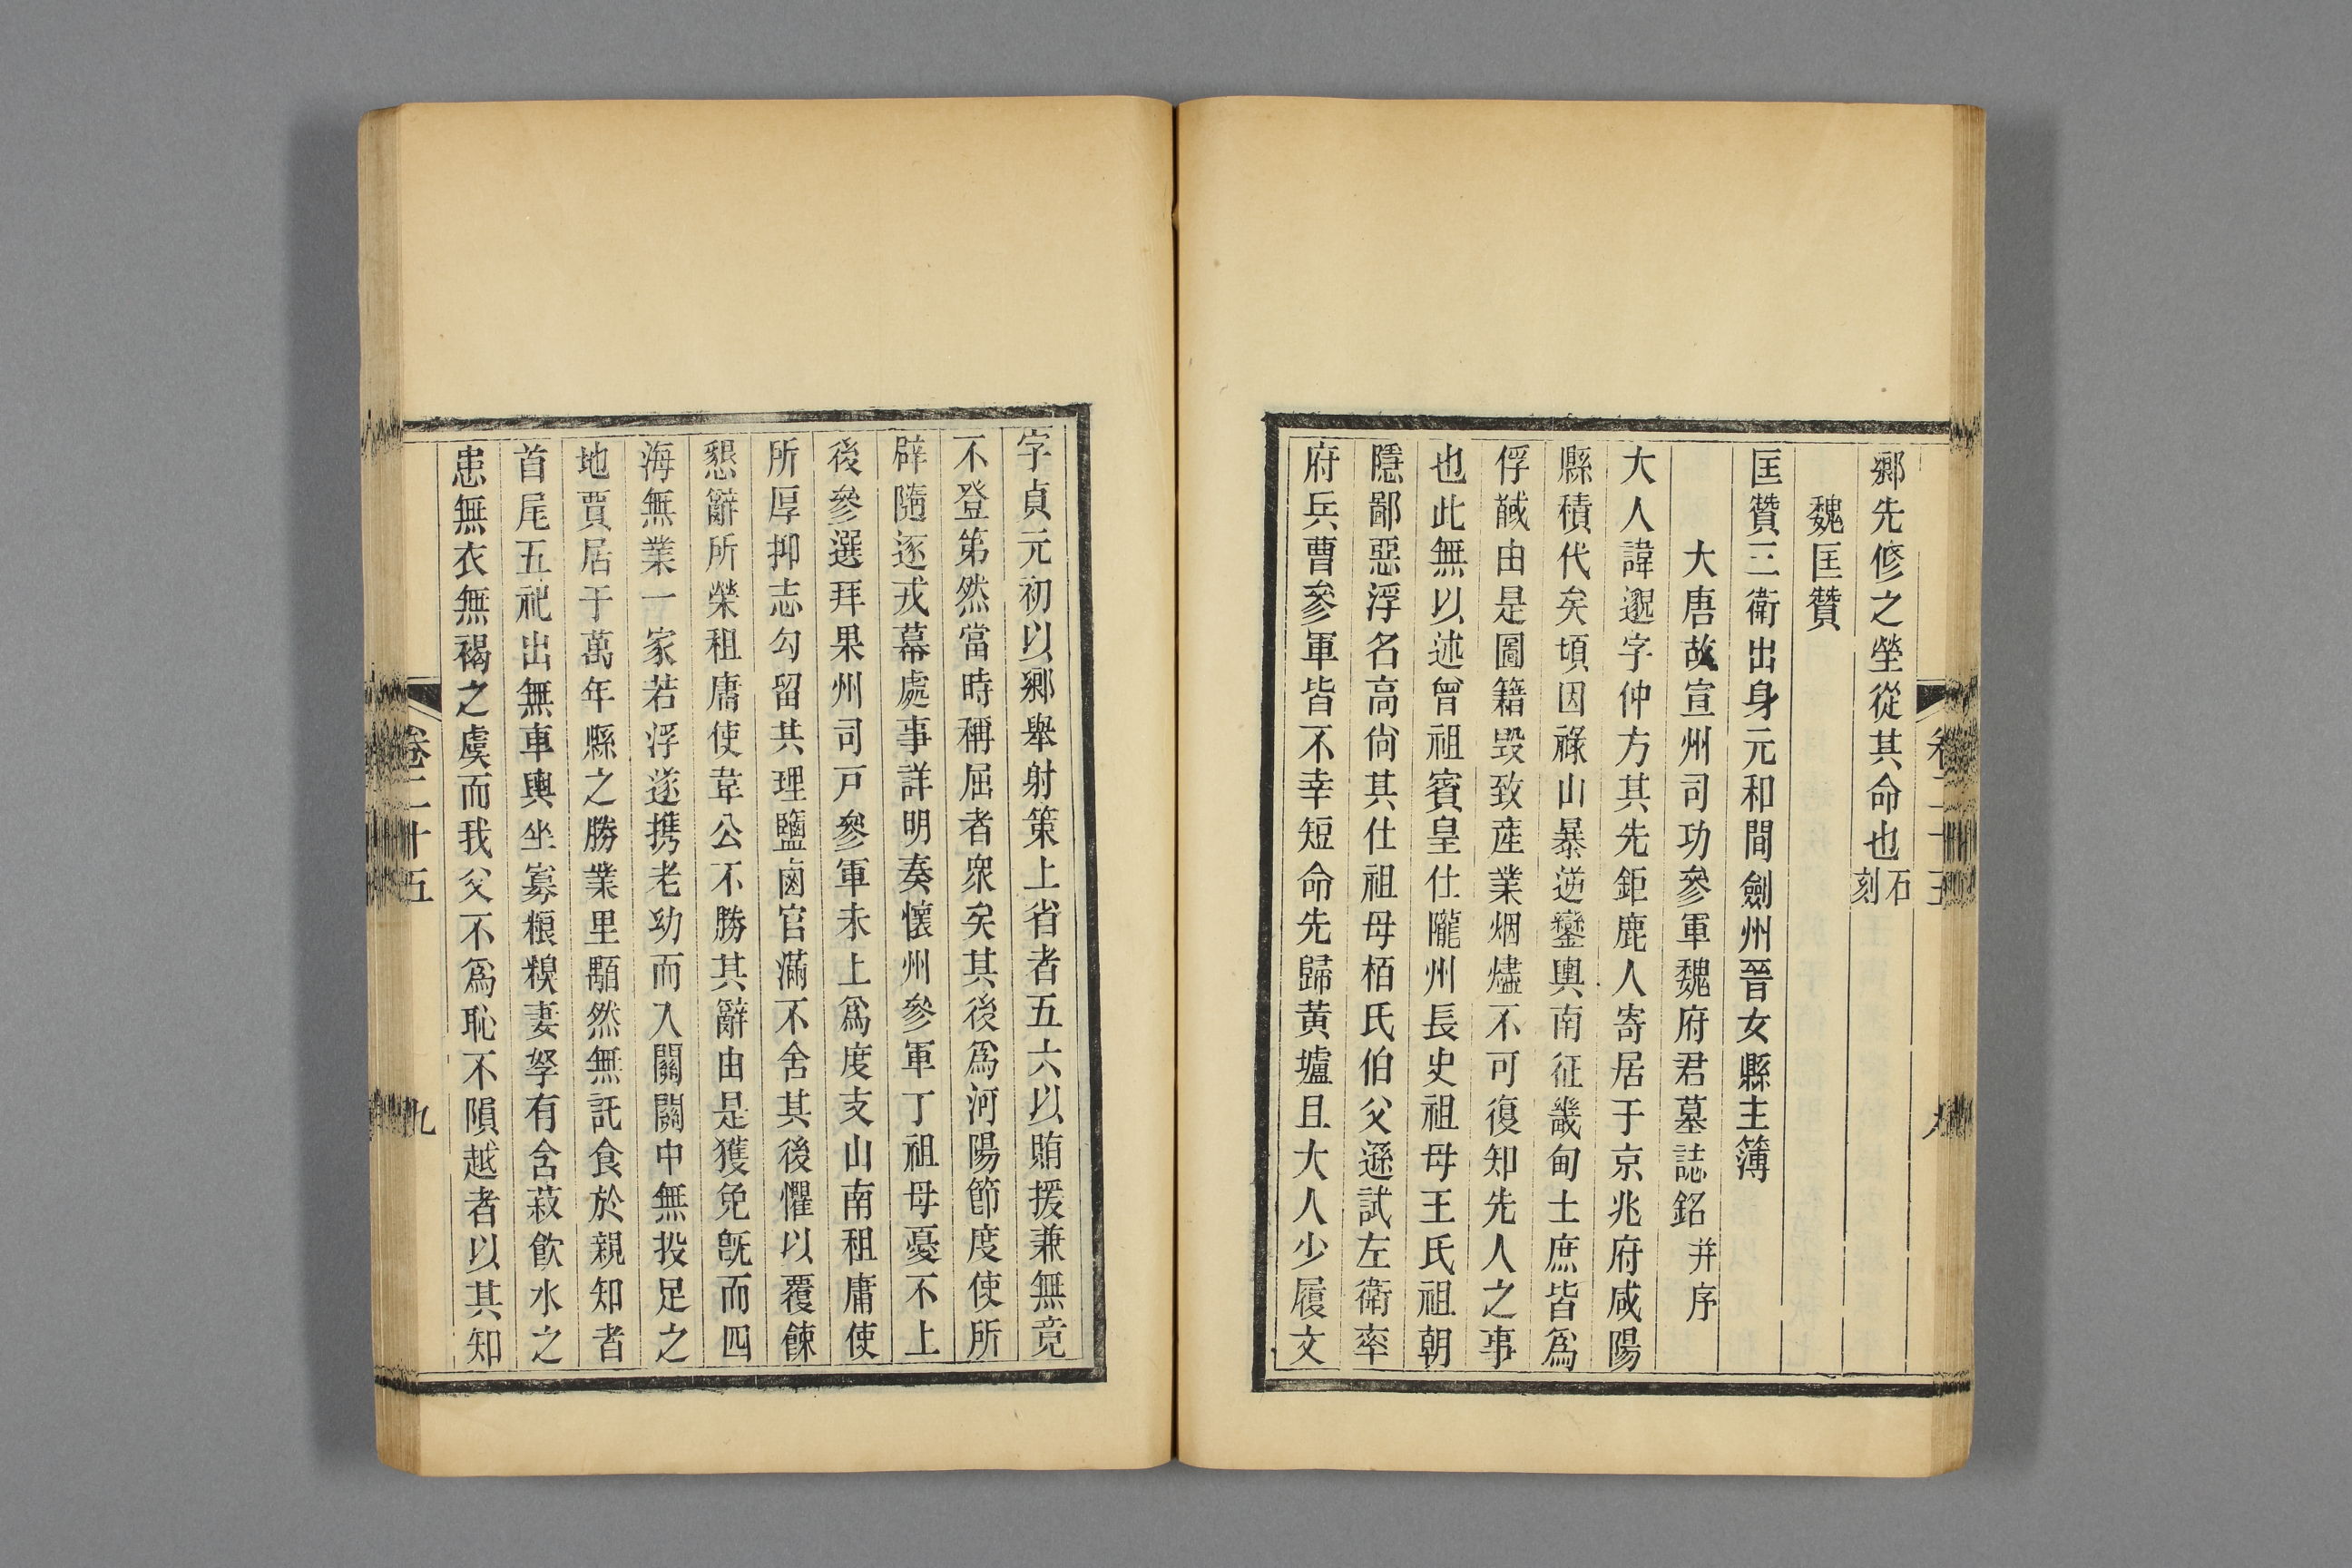 鄉先修之塋從其命也石刻
魏匡贊
匡贊三衛出身元和間劍州晉女縣主簿
大唐故宣州司功參軍魏府君墓誌銘并序
大人諱邈字仲方其先鉅鹿人寄居于京兆府咸陽
縣積代矣頃因祿山暴逆鑾輿南征畿甸士庶皆爲
俘馘由是圖籍毀致產業烟燼不可復知先人之事
也此無以述曾祖賓皇仕隴州長史祖母王氏祖朝
隱鄙惡浮名高尙其仕祖母栢氏伯父遜試左衛率
府兵曹參軍皆不幸短命先歸黃壚且大人少履文
字貞元初以鄉舉射策上省者五六以賄援兼無竟
不登第然當時稱屈者衆矣其後爲河陽節度使所
辟隨逐戎幕處事詳明奏懷州參軍丁祖母憂不上
後參選拜果州司戸參軍未上爲度支山南租庸使
所厚抑志勾留共理鹽鹵官滿不舍其後懼以覆餗
懇辭所榮租庸使韋公不勝其辭由是獲免旣而四
海無業一家若浮遂攜老幼而入關關中無投足之
地賈居于萬年縣之勝業里顒然無託食於親知者
首尾五祀出無車輿坐寡粮糗妻孥有含菽飮水之
患無衣無褐之虞而我父不爲恥不隕越者以其知
卷二十五
九